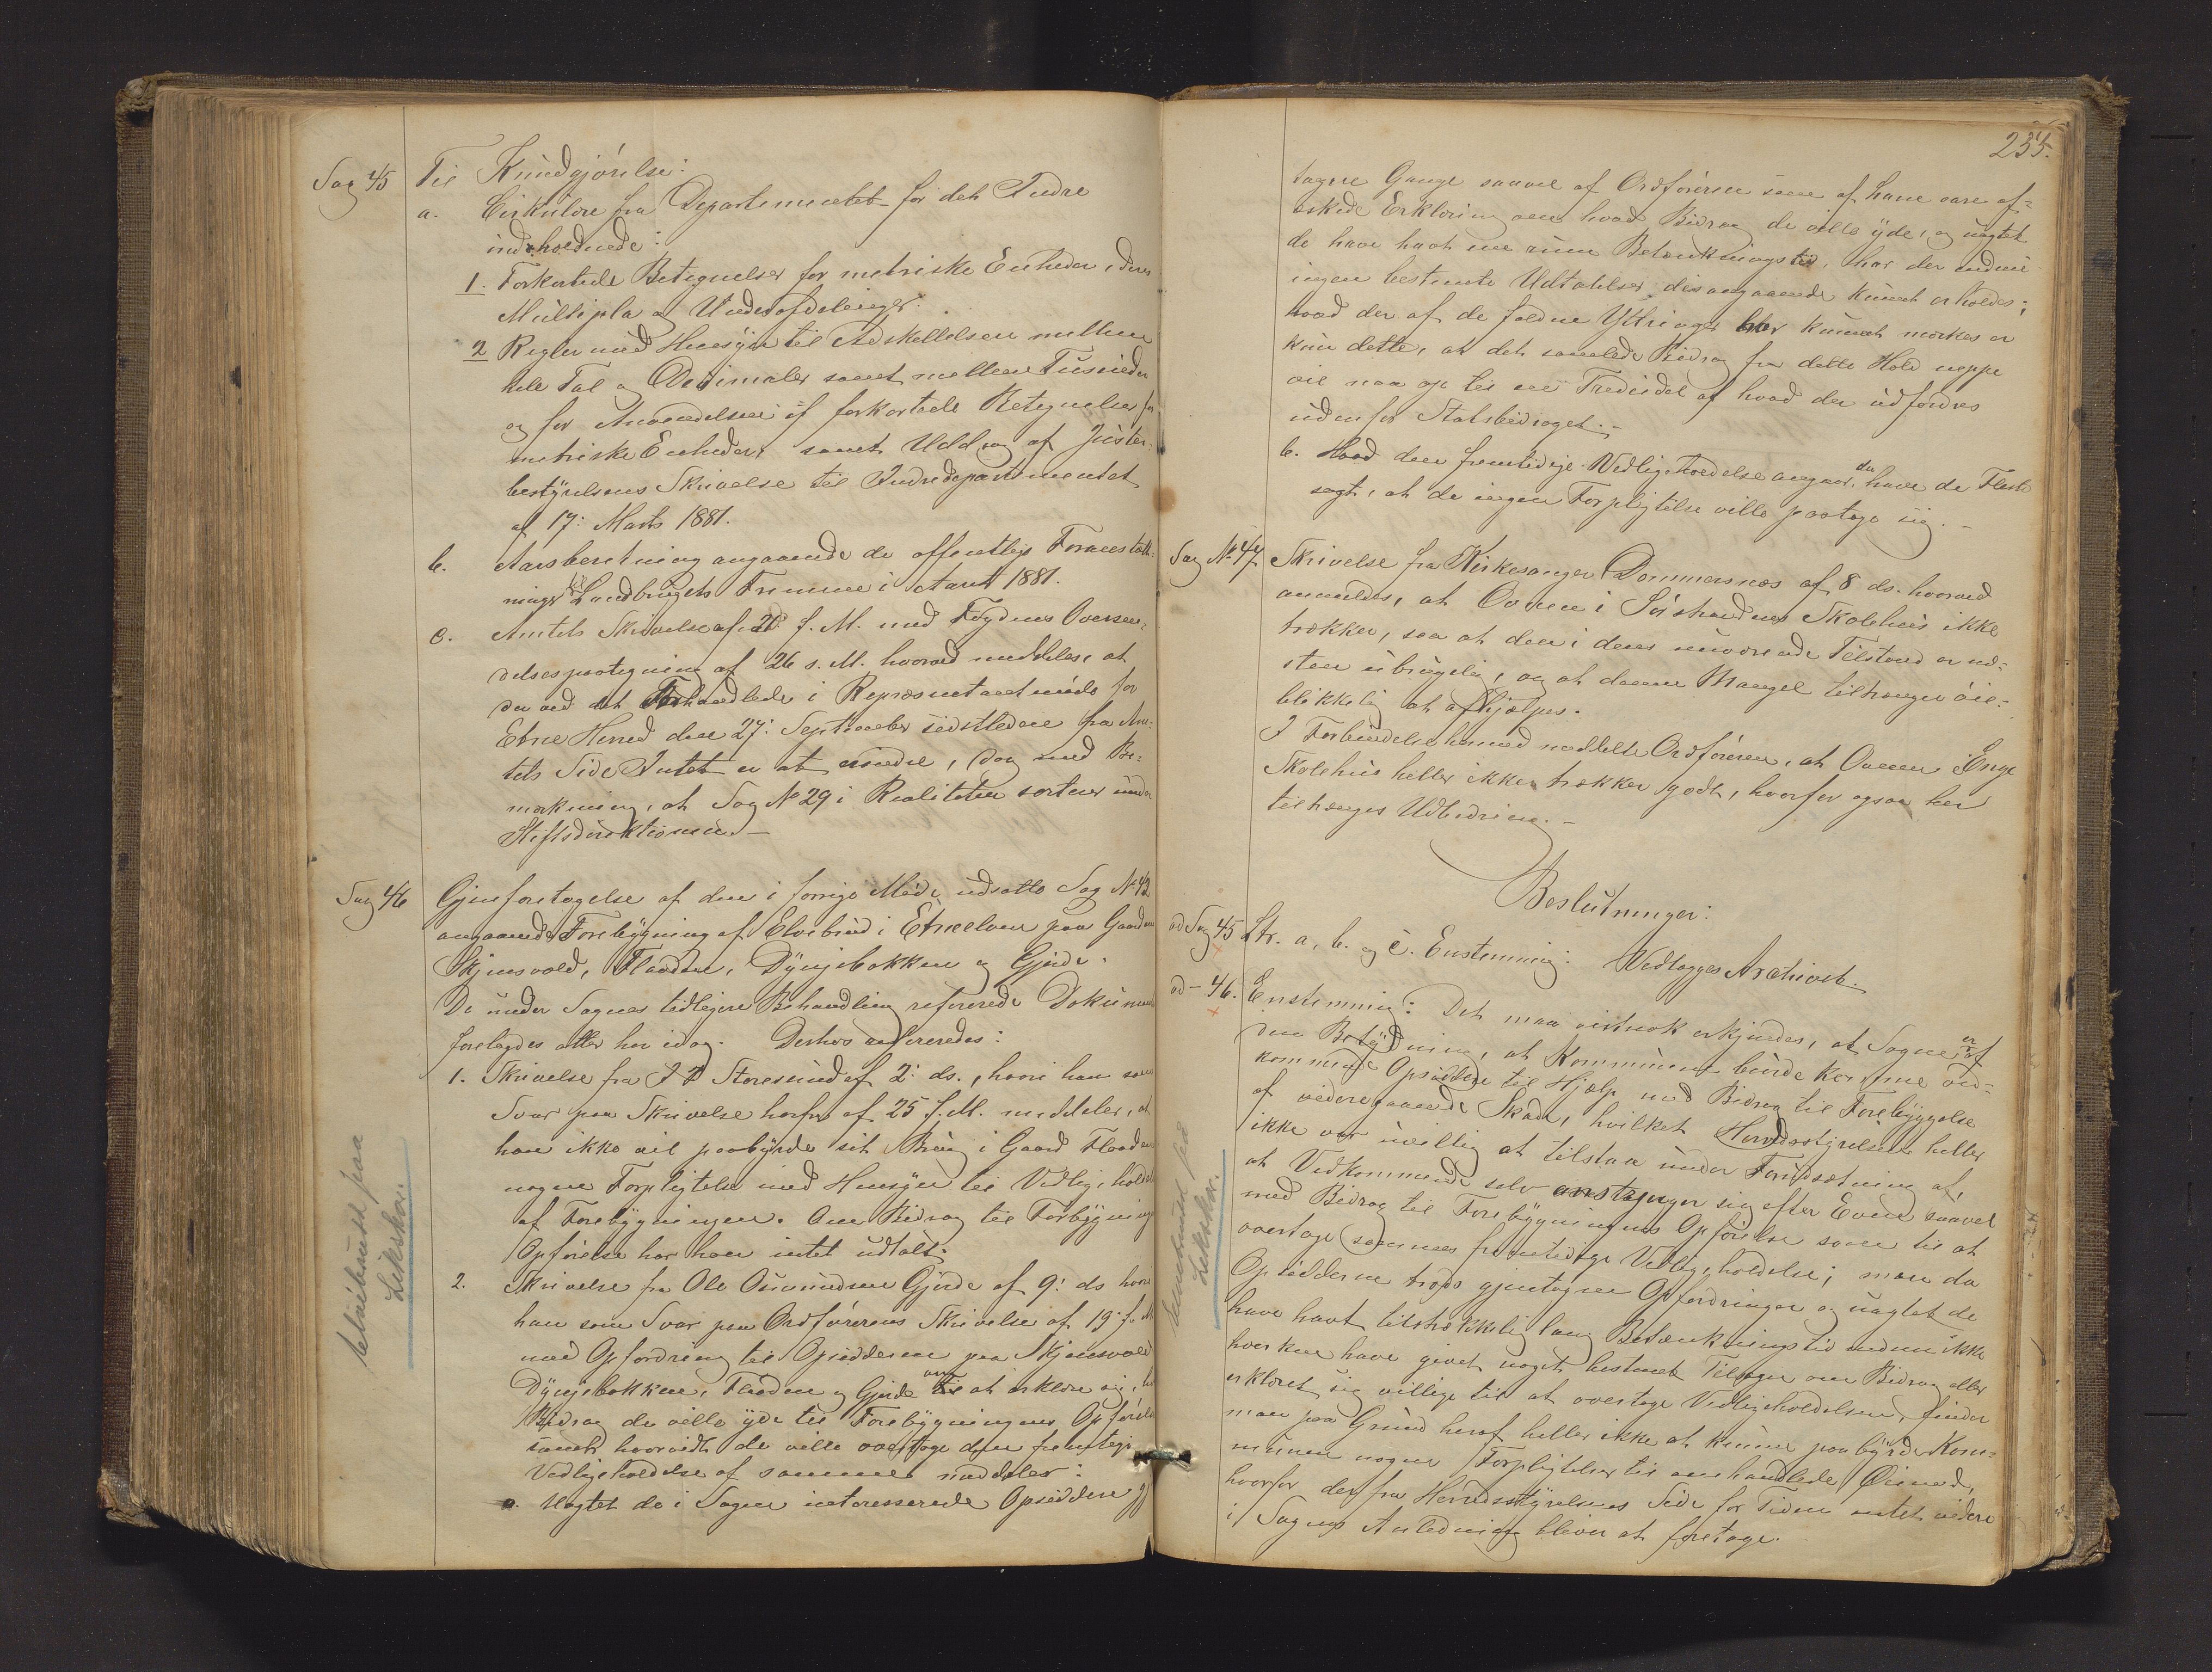 Sag 45 Til Kundgjørelse:
a. Cirkulære fra Departementet for det Indre
indeholdende:
1. Forkortede Betegnelser for metriske Enheder, deres
Multipla og Underafdelinger.
2 Regler med Hensyn til Adskellelsen mellem
hele Tal og Decimaler samt mellem Tusinder
og for Anvendelsen af forkortede Betegnelser for
metriske Enheder, samt Uddrag af Juster-
bestyrelsens Skrivelse til Indredepartementet
af 17: Marts 1881.
b. Aarsberetning angaaende de offentlige Foranstalt-
ninger til Landbrugets Fremme i Aaret 1881.
c. Amtets Skrivelse af f. M. med Fogdens Oversen-
delsespaategning af 26 s. M. hvorved meddeles, at
der ved det Forhandlede i Repræsentantmøde for
Etne Herred den 27: September sidstledne fra Am-
tets Side Intet er at erindre, dog med Be-
mærkning, at Sag No 29 i Realiteten sorterer under
Stiftsdirektionen.—
Sag 46 Gjenforetagelse af den i forrige Møde udsatte Sag No 42
angaaende Forebygning af Elvebrud i Etneelven paa Gaardene
Skjensvold, Flaaden, Dyngebakken og Gjerde.
De under Sagens tidligere Behandling refererede Dokumenter
forelagdes atter her idag. Derhos refereredes:
1. Skrivelse fra Storesund af 2: ds., hvori han som
Svar paa Skrivelse herfra af 25 f. M. meddeler, at
han ikke vil paabyrde sit Brug i Gaard Flaaden
nogen Forpligtelse med Hensyn til Vedligeholdelse
af Forebygningen. Om Bidrag til Forbygningens
Opførelse har han intet udtalt.
2. Skrivelse fra Ole Gjerde af 9: ds hvori
han som Svar paa Ordførerens Skrivelse af 19 f. M
med Opfordring til Opsidderne paa Skjensvold
Dyngebakken, Flaaden og Gjerde om at erklære sig,
Bidrag de ville yde til Forebygningens Opførelse
samt hvorvidt de ville overtage den fremtidige
Vedligeholdelse af samme meddeler:
a. Uagtet de i Sagen interesserede Opsiddere
paa
Likskor.
235.
tagne Gange saavel af Ordføreren som af ham ere af-
æskede Erklæring om hvad Bidrag de ville yde, og uagtet
de have havt en rum Betænkningstid, har der endnu
ingen bestemte Udtalelser desangaaende kunnet erholdes;
hvad der af de faldne Yttringer har kunnet mærkes er
kun dette, at det samlede Bidrag fra dette Hold neppe
vil naa op til en Trediedel af hvad der udfordres
udenfor Statsbidraget.—
b. Hvad den fremtidige Vedligeholdelse angaar, da have de Fleste
sagt, at de ingen Forpligtelse ville paatage sig.—
Sag No 47 Skrivelse fra Kirkesanger Dommersnes af 8 ds. hvorved
anmeldes, at Ovnen i Sørstrandens Skolehus ikke
trækker, saa at den i dens nuværende Tilstand er næ-
sten ubrugelig, og at denne Mangel tiltrænger øie-
blikkelig at afhjælpes.
I Forbindelse hermed meddelte Ordføreren, at Ovnen i Enge
Skolehus heller ikke trækker godt, hvorfor ogsaa her
tiltrænges Udbedring.—
Beslutninger:
ad Sag 45 Ltr. a, b. og c. Enstemmig: Vedlægges Archivet.
ad — 46. Enstemmig: Det maa vistnok erkjendes, at Sagen er af
den Betydning, at Kommunen burde komme ved-
kommende Opsiddere til Hjælp med Bidrag til Forebyggelse
af videregaaende Skade, hvilket Herredsstyrelsen heller
ikke var uvillig at tilstaa under Forudsætning af,
at Vedkommende selv anstrenger sig efter Evne saavel
med Bidrag til Forebygningens Opførelse som til at
overtage sammes fremtidige Vedligeholdelse; men da
Opsidderne trods gjentagne Opfordringer og uagtet de
have havt tilstrækkelig lang Betænkningstid endnu ikke
hverken have givet noget bestemt Tilsagn om Bidrag eller
erklæret sig villige til at overtage Vedligeholdelsen, finder
man paa Grund heraf heller ikke at kunne paabyrde Kom-
munen nogen Forpligtelser til omhandlede Øiemed,
hvorfor der fra Herredsstyrelsens Side for Tiden intet videre
i Sagens Anledning bliver at foretage.
Likskor.